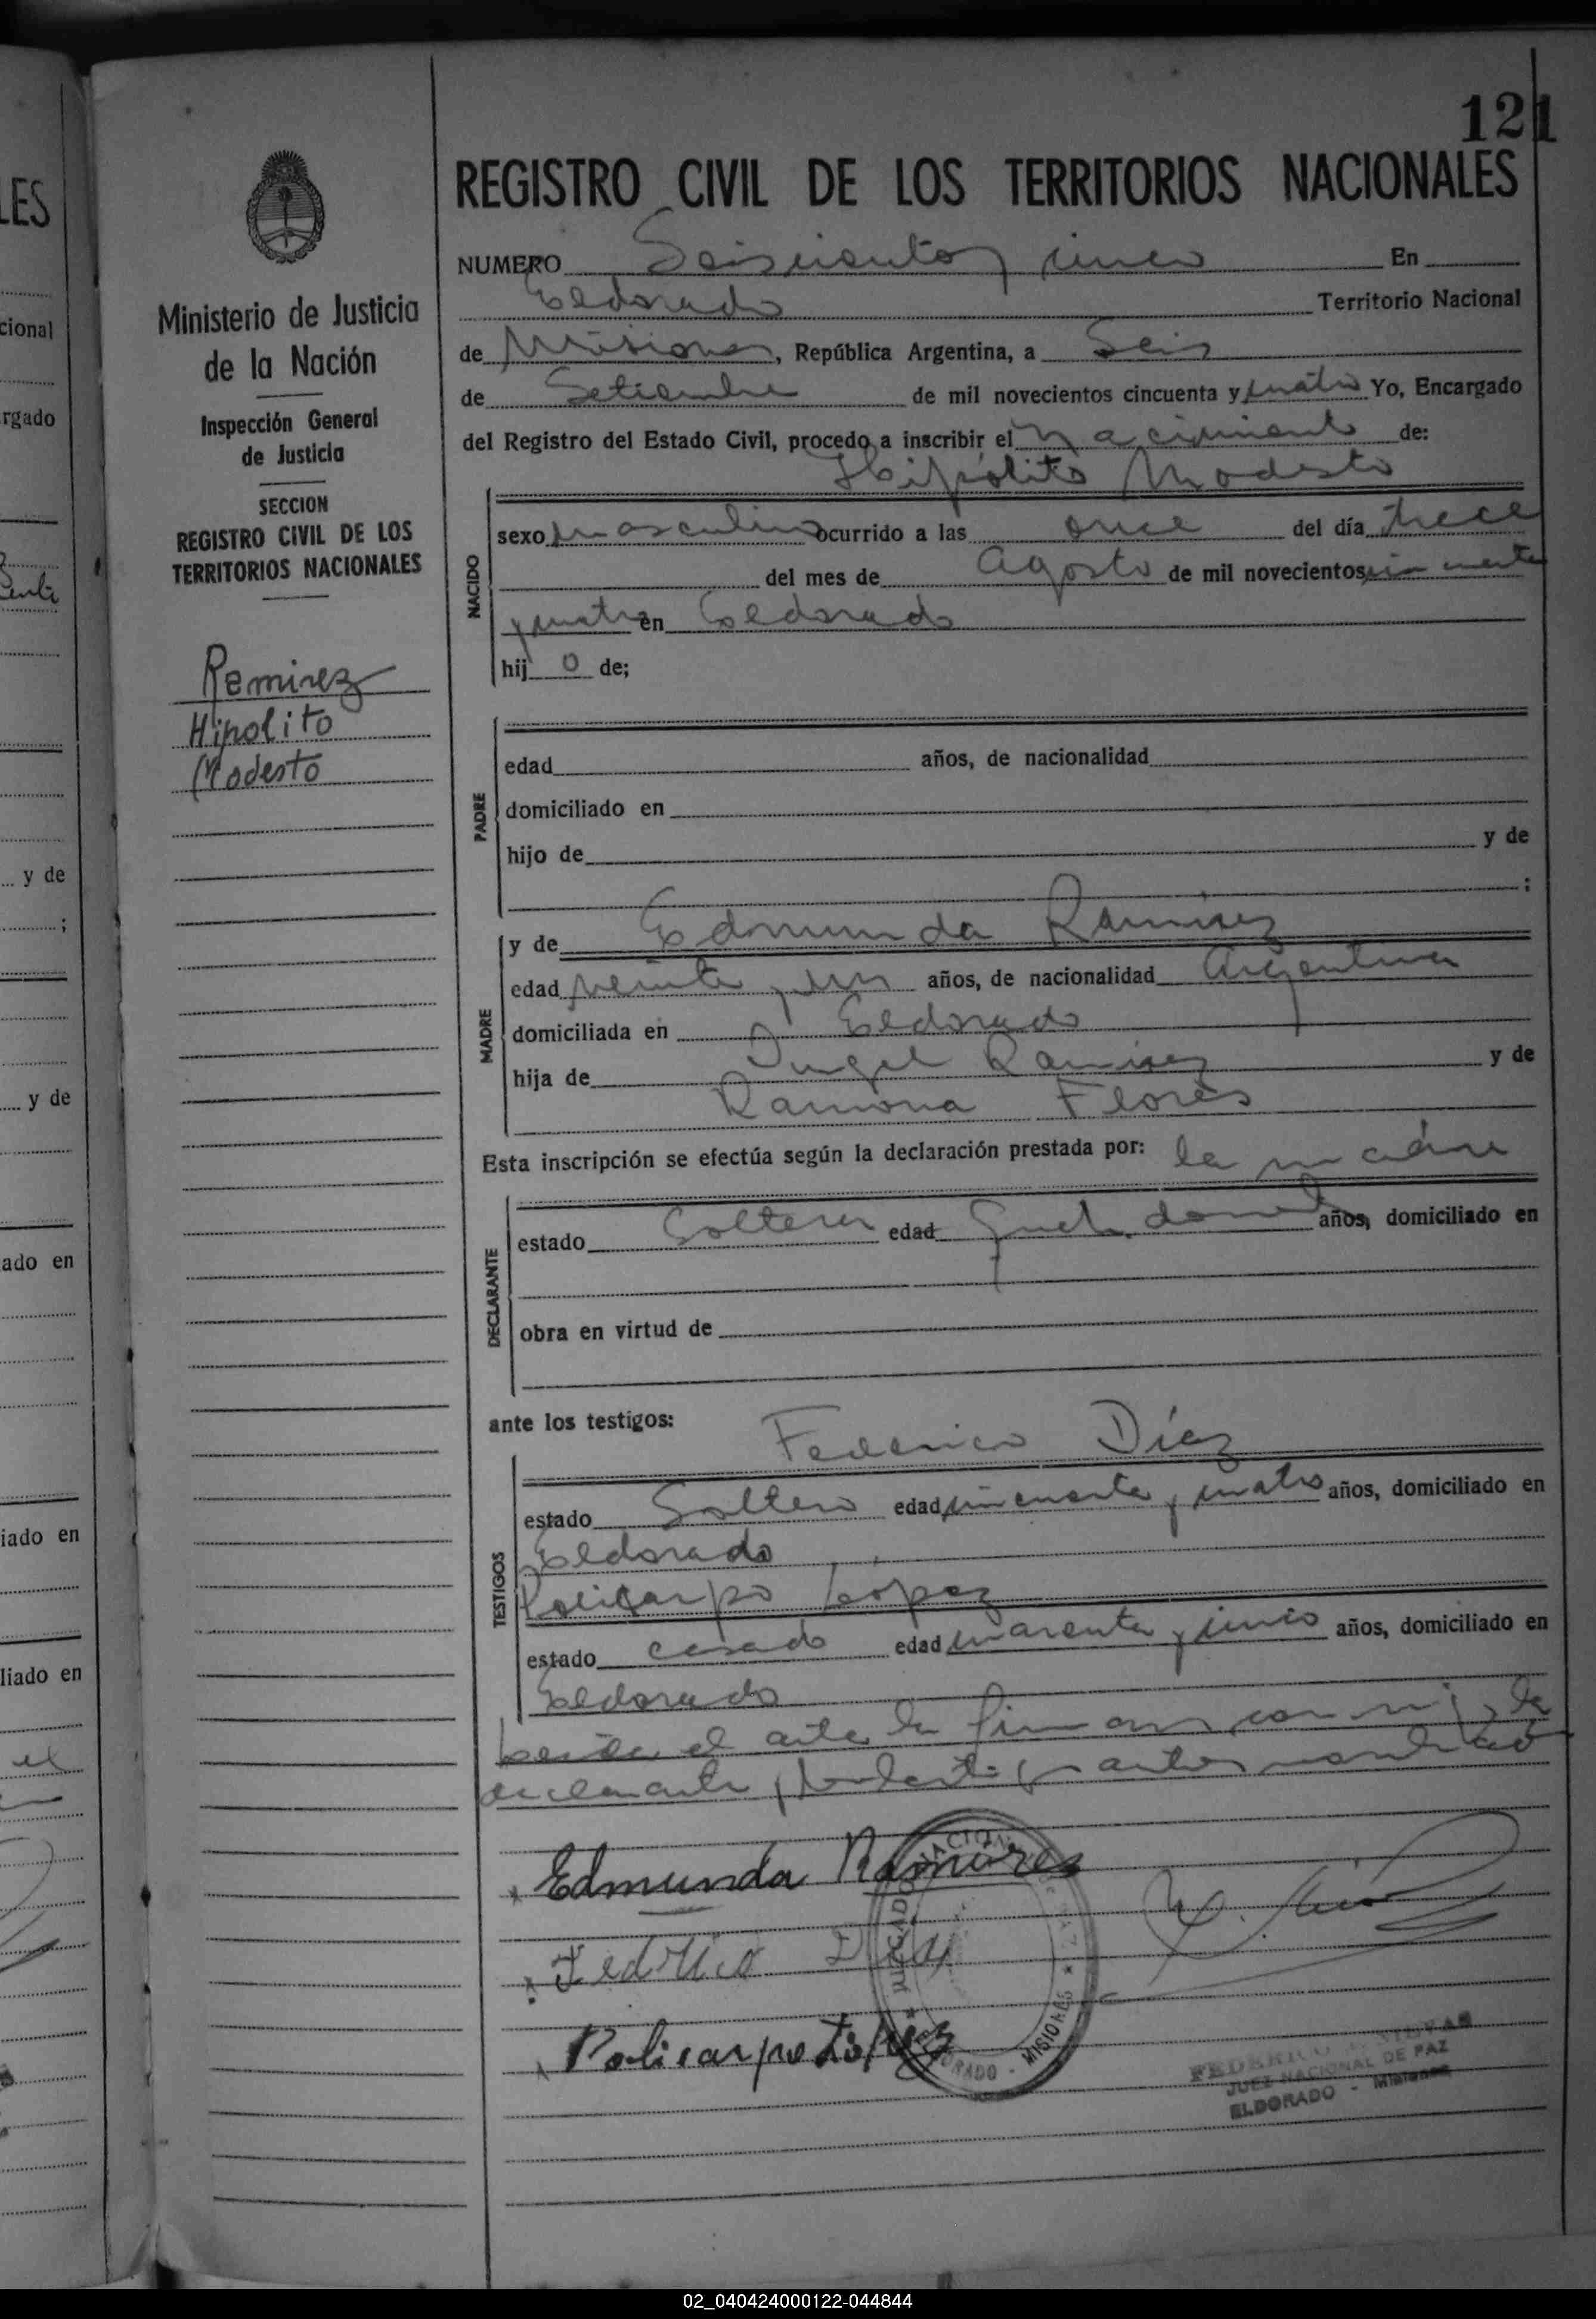 121
REGISTRO CIVIL DE LOS TERRITORIOS NACIONALES
NUMERO Seiscientos cinco En
Eldorado Territorio Nacional
de Misiones, República Argentina, a Seis
de Setiembre de mil novecientos cincuenta y cuatro Yo, Encargado
del Registro del Estado Civil, procedo a inscribir el nacimiento de:
Hipólito Modesto
NACIDO
sexo masculino ocurrido a las once del día trece
del mes de Agosto de mil novecientos cincuenta
y cuatro en Eldorado
hij o de;
PADRE
edad años, de nacionalidad
domiciliado en
hijo de y de
;
MADRE
y de Edmunda Ramirez
edad veinte y un años, de nacionalidad Argentina
domiciliada en Eldorado
hija de Angel Ramirez y de
Ramona Flores
Esta inscripción se efectúa según la declaración prestada por: la madre
DECLARANTE
estado Soltera edad años, domiciliado en
obra en virtud de
ante los testigos:
Federico Díaz
TESTIGOS
estado Soltero edad cincuenta y cuatro años, domiciliado en
Eldorado
Policarpo López
estado casado edad cuarenta y cinco años, domiciliado en
Eldorado
el acta la firman con mi la
declarante y los testigos antes
Edmunda Ramires
Federico Diaz
Policarpo Lopez
JUZGADO NACIONAL DE PAZ
ELDORADO - MISIONES
FEDERICO
JUEZ NACIONAL DE PAZ
ELDORADO - Misiones
Ministerio de Justicia
de la Nación
Inspección General
de Justicia
SECCION
REGISTRO CIVIL DE LOS
TERRITORIOS NACIONALES
Remirez
Hipolito
Modesto
LES
cional
rgado
y de
;
y de
ado en
iado en
liado en
02_040424000122-044844